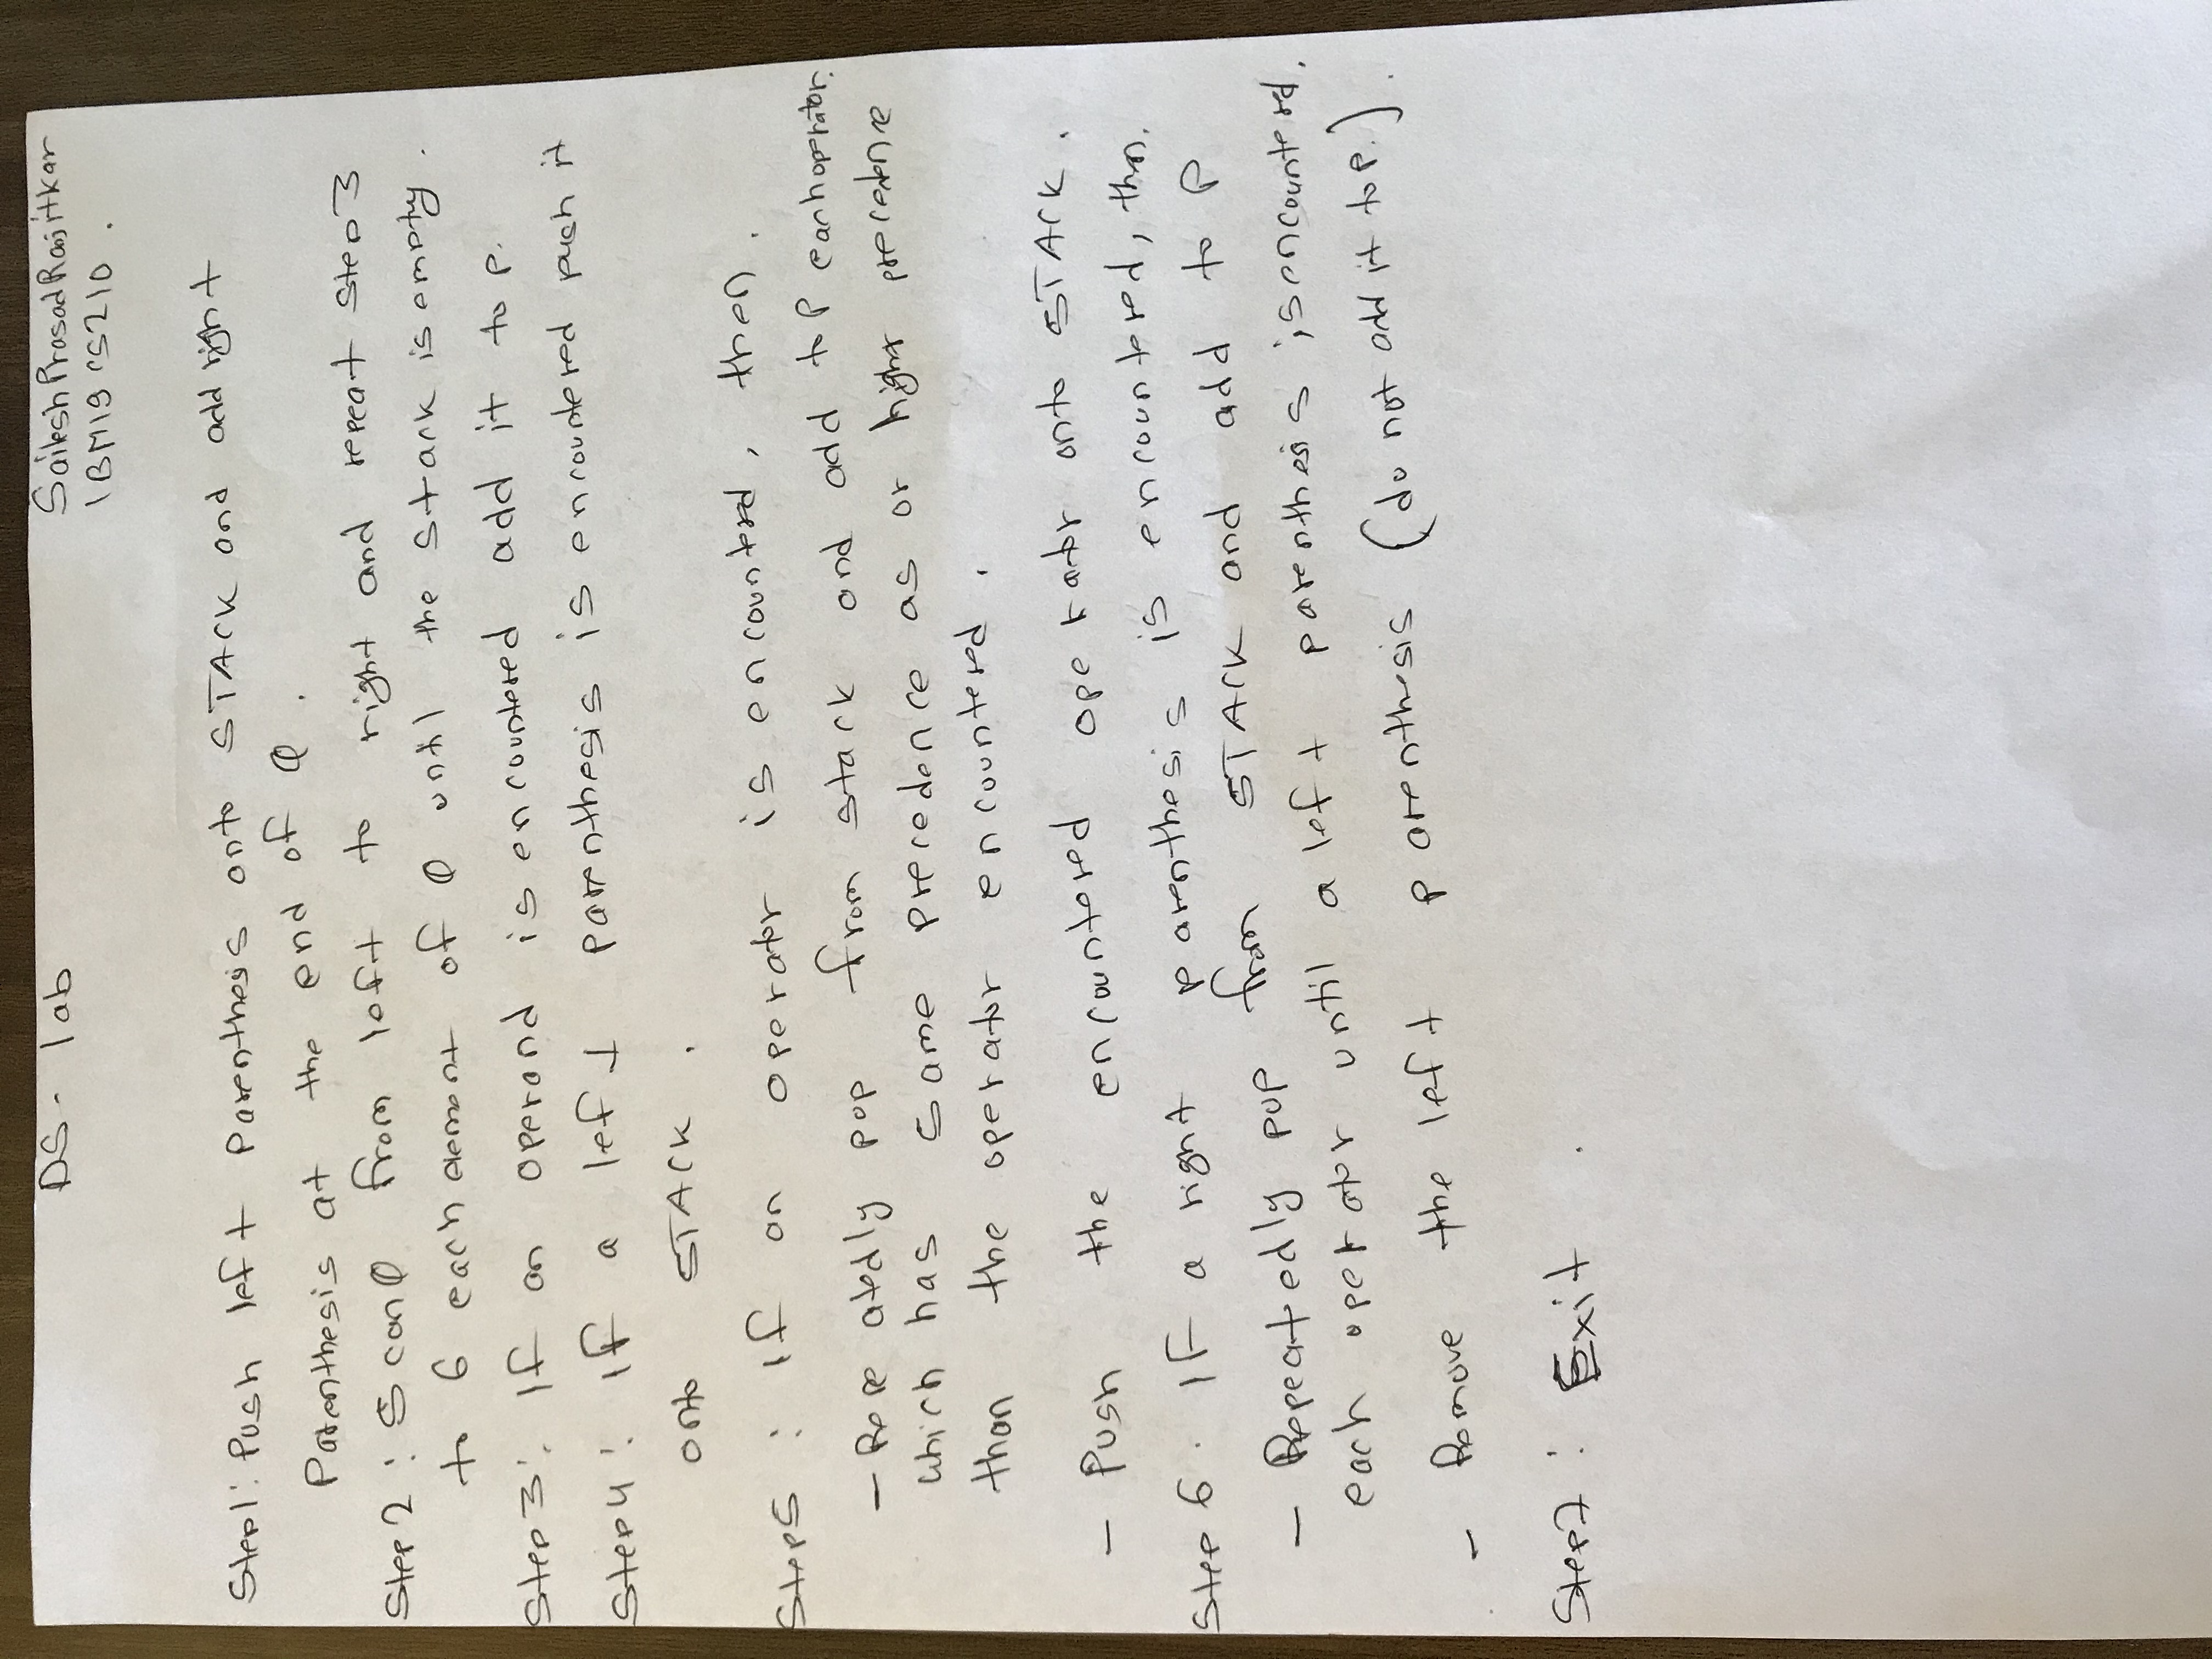 DS - lab
Sailesh Prasad Ranjitkar
1BM19CS210.
Step1: Push left Parenthesis onto STACK and add right
Parenthesis at the end of Q.
Step 2: Scan Q from left to right and repeat step 3
to 6 each element of Q until the stack is empty.
Step 3: If an operand is encountered add it to p.
Step 4: If a left parenthesis is encountered push it
onto STACK.
Step 5: If an operator is encountered, then.
- Repeatedly pop from stack and add to P each operator.
which has same precedence as or higher precedence
than the operator encountered.
- Push the encountered operator onto STACK.
Step 6. If a right parenthesis is encountered, then.
- Repeatedly pop from STACK and add to P
each operator until a left parenthesis is encountered.
- Remove the left parenthesis (do not add it to p.).
Step 7: Exit.